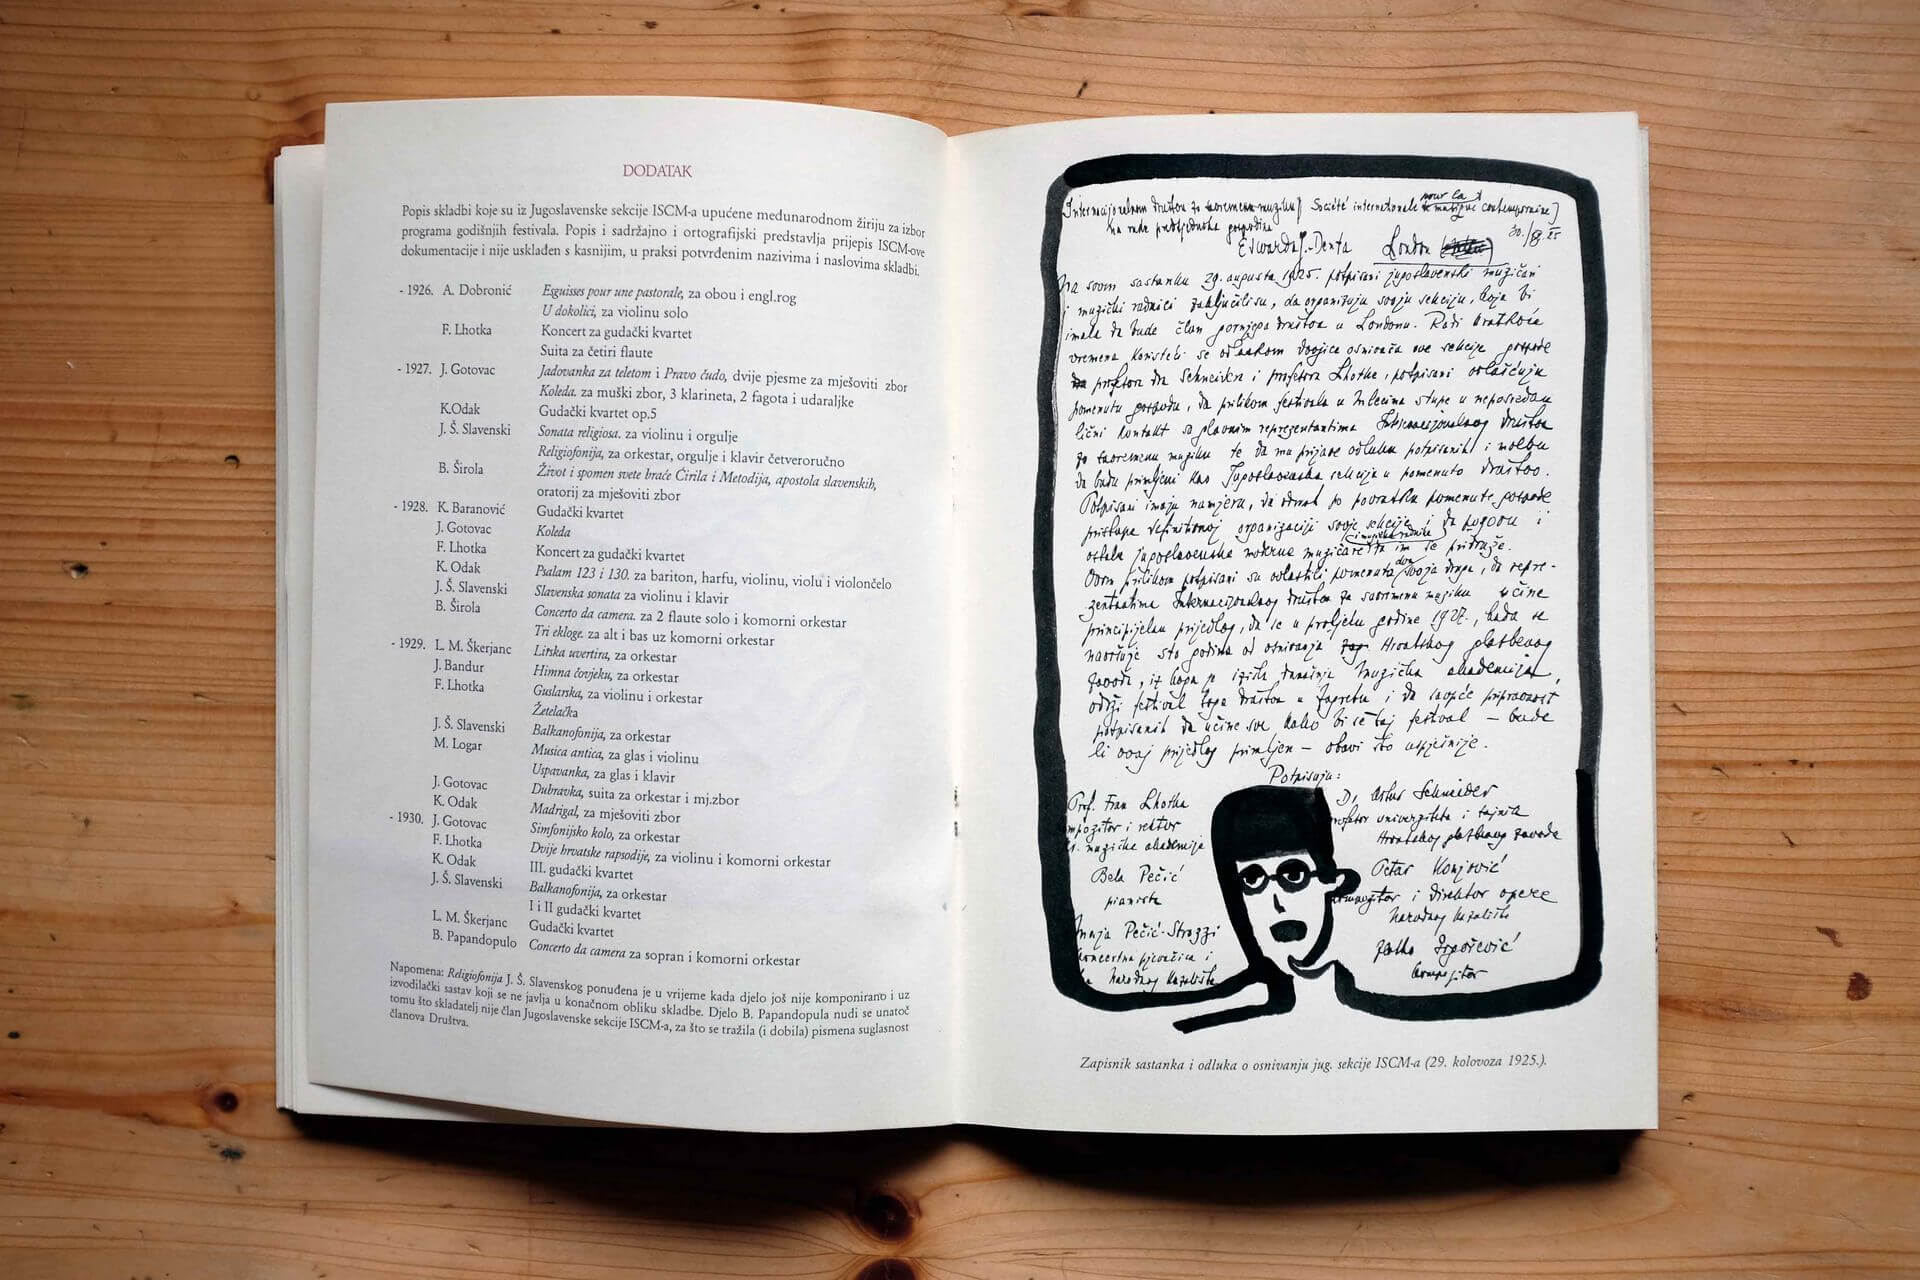 DODATAK
Popis skladbi koje su iz Jugoslavenske sekcije ISCM-a upućene međunarodnom žiriju za izbor
programa godišnjih festivala. Popis i sadržajno i ortografijski predstavlja prijepis ISCM-ove
dokumentacije i nije usklađen s kasnijim, u praksi potvrđenim nazivima i naslovima skladbi.
- 1926. A. Dobronić Esguisses pour une pastorale, za obou i engl.rog
U dokolici, za violinu solo
F. Lhotka Koncert za gudački kvartet
Suita za četiri flaute
- 1927. J. Gotovac Jadovanka za teletom i Pravo čudo, dvije pjesme za mješoviti zbor
Koleda. za muški zbor, 3 klarineta, 2 fagota i udaraljke
K.Odak Gudački kvartet op.5
J. Š. Slavenski Sonata religiosa. za violinu i orgulje
Religiofonija, za orkestar, orgulje i klavir četveroručno
B. Širola Život i spomen svete braće Ćirila i Metodija, apostola slavenskih,
oratorij za mješoviti zbor
- 1928. K. Baranović Gudački kvartet
J. Gotovac Koleda
F. Lhotka Koncert za gudački kvartet
K. Odak Psalam 123 i 130. za bariton, harfu, violinu, violu i violončelo
J. Š. Slavenski Slavenska sonata za violinu i klavir
B. Širola Concerto da camera. za 2 flaute solo i komorni orkestar
Tri ekloge. za alt i bas uz komorni orkestar
- 1929. L. M. Škerjanc Lirska uvertira, za orkestar
J. Bandur Himna čovjeku, za orkestar
F. Lhotka Guslarska, za violinu i orkestar
Žetelačka
J. Š. Slavenski Balkanofonija, za orkestar
M. Logar Musica antica, za glas i violinu
Uspavanka, za glas i klavir
J. Gotovac Dubravka, suita za orkestar i mj.zbor
K. Odak Madrigal, za mješoviti zbor
- 1930. J. Gotovac Simfonijsko kolo, za orkestar
F. Lhotka Dvije hrvatske rapsodije, za violinu i komorni orkestar
K. Odak III. gudački kvartet
J. Š. Slavenski Balkanofonija, za orkestar
I i II gudački kvartet
L. M. Škerjanc Gudački kvartet
B. Papandopulo Concerto da camera za sopran i komorni orkestar
Napomena: Religiofonija J. Š. Slavenskog ponuđena je u vrijeme kada djelo još nije komponirano i uz
izvodilački sastav koji se ne javlja u konačnom obliku skladbe. Djelo B. Papandopula nudi se unatoč
tomu što skladatelj nije član Jugoslavenske sekcije ISCM-a, za što se tražila (i dobila) pismena suglasnost
članova Društva.
pour la
Internacijonalnom društvu za suvremenu muziku / Société internationale contemporaine)
na ruke predsjednika gospodina
Edwarda J. Denta London
Na svom sastanku 29. augusta 1925. potpisani jugoslavenski muzičari
i muzički radnici zaključili su, da organizuju svoju sekciju, koja bi
imala da bude član gornjega društva u Londonu. Radi kratkoće
vremena koristeći se odlaskom dvojice osnivača ove sekcije gospode
profesora dra Schneidera i profesora Lhotke, potpisani ovlašćuju
pomenutu gospodu, da prilikom festivala u Mlecima stupe u neposredan
lični kontakt sa glavnim reprezentantima Internacijonalnog društva
za suvremenu muziku te da im prijave odluku potpisanih i molbu
da budu primljeni kao Jugoslavenska sekcija u pomenuto društvo.
Potpisani imaju namjeru, da odmah po povratku pomenute gospode
pristupe definitivnoj organizaciji svoje sekcije i da pozovu i
i muzičke radnike
ostale jugoslavenske moderne muzičare da im se pridruže.
Ovom prilikom potpisani su ovlastili pomenuta dva svoja druga, da repre-
zentantima Internacijonalnog društva za suvremenu muziku učine
principijelan prijedlog, da se u proljeću godine 1927., kada se
navršuje sto godina od osnivanja Hrvatskog glazbenog
zavoda, iz koga je izišla današnja Muzička akademija,
održi festival toga društva u Zagrebu i da saopće pripravnost
potpisanih da učine sve kako bi se taj festival — bude
li ovaj prijedlog primljen — obavi što uspješnije.
Potpisuju:
Prof. Fran Lhotka
kompozitor i rektor
muzičke akademije
Bela Pečić
pianista
Maja Pečić-Strozzi
koncertna pjevačica i
Narodnog kazališta
Dr Artur Schneider
profesor univerziteta i tajnik
Hrvatskog glazbenog zavoda
Petar Konjović
kompozitor i direktor opere
Narodnog kazališta
Zlatko Grgošević
kompozitor
Zapisnik sastanka i odluka o osnivanju jug. sekcije ISCM-a (29. kolovoza 1925.).